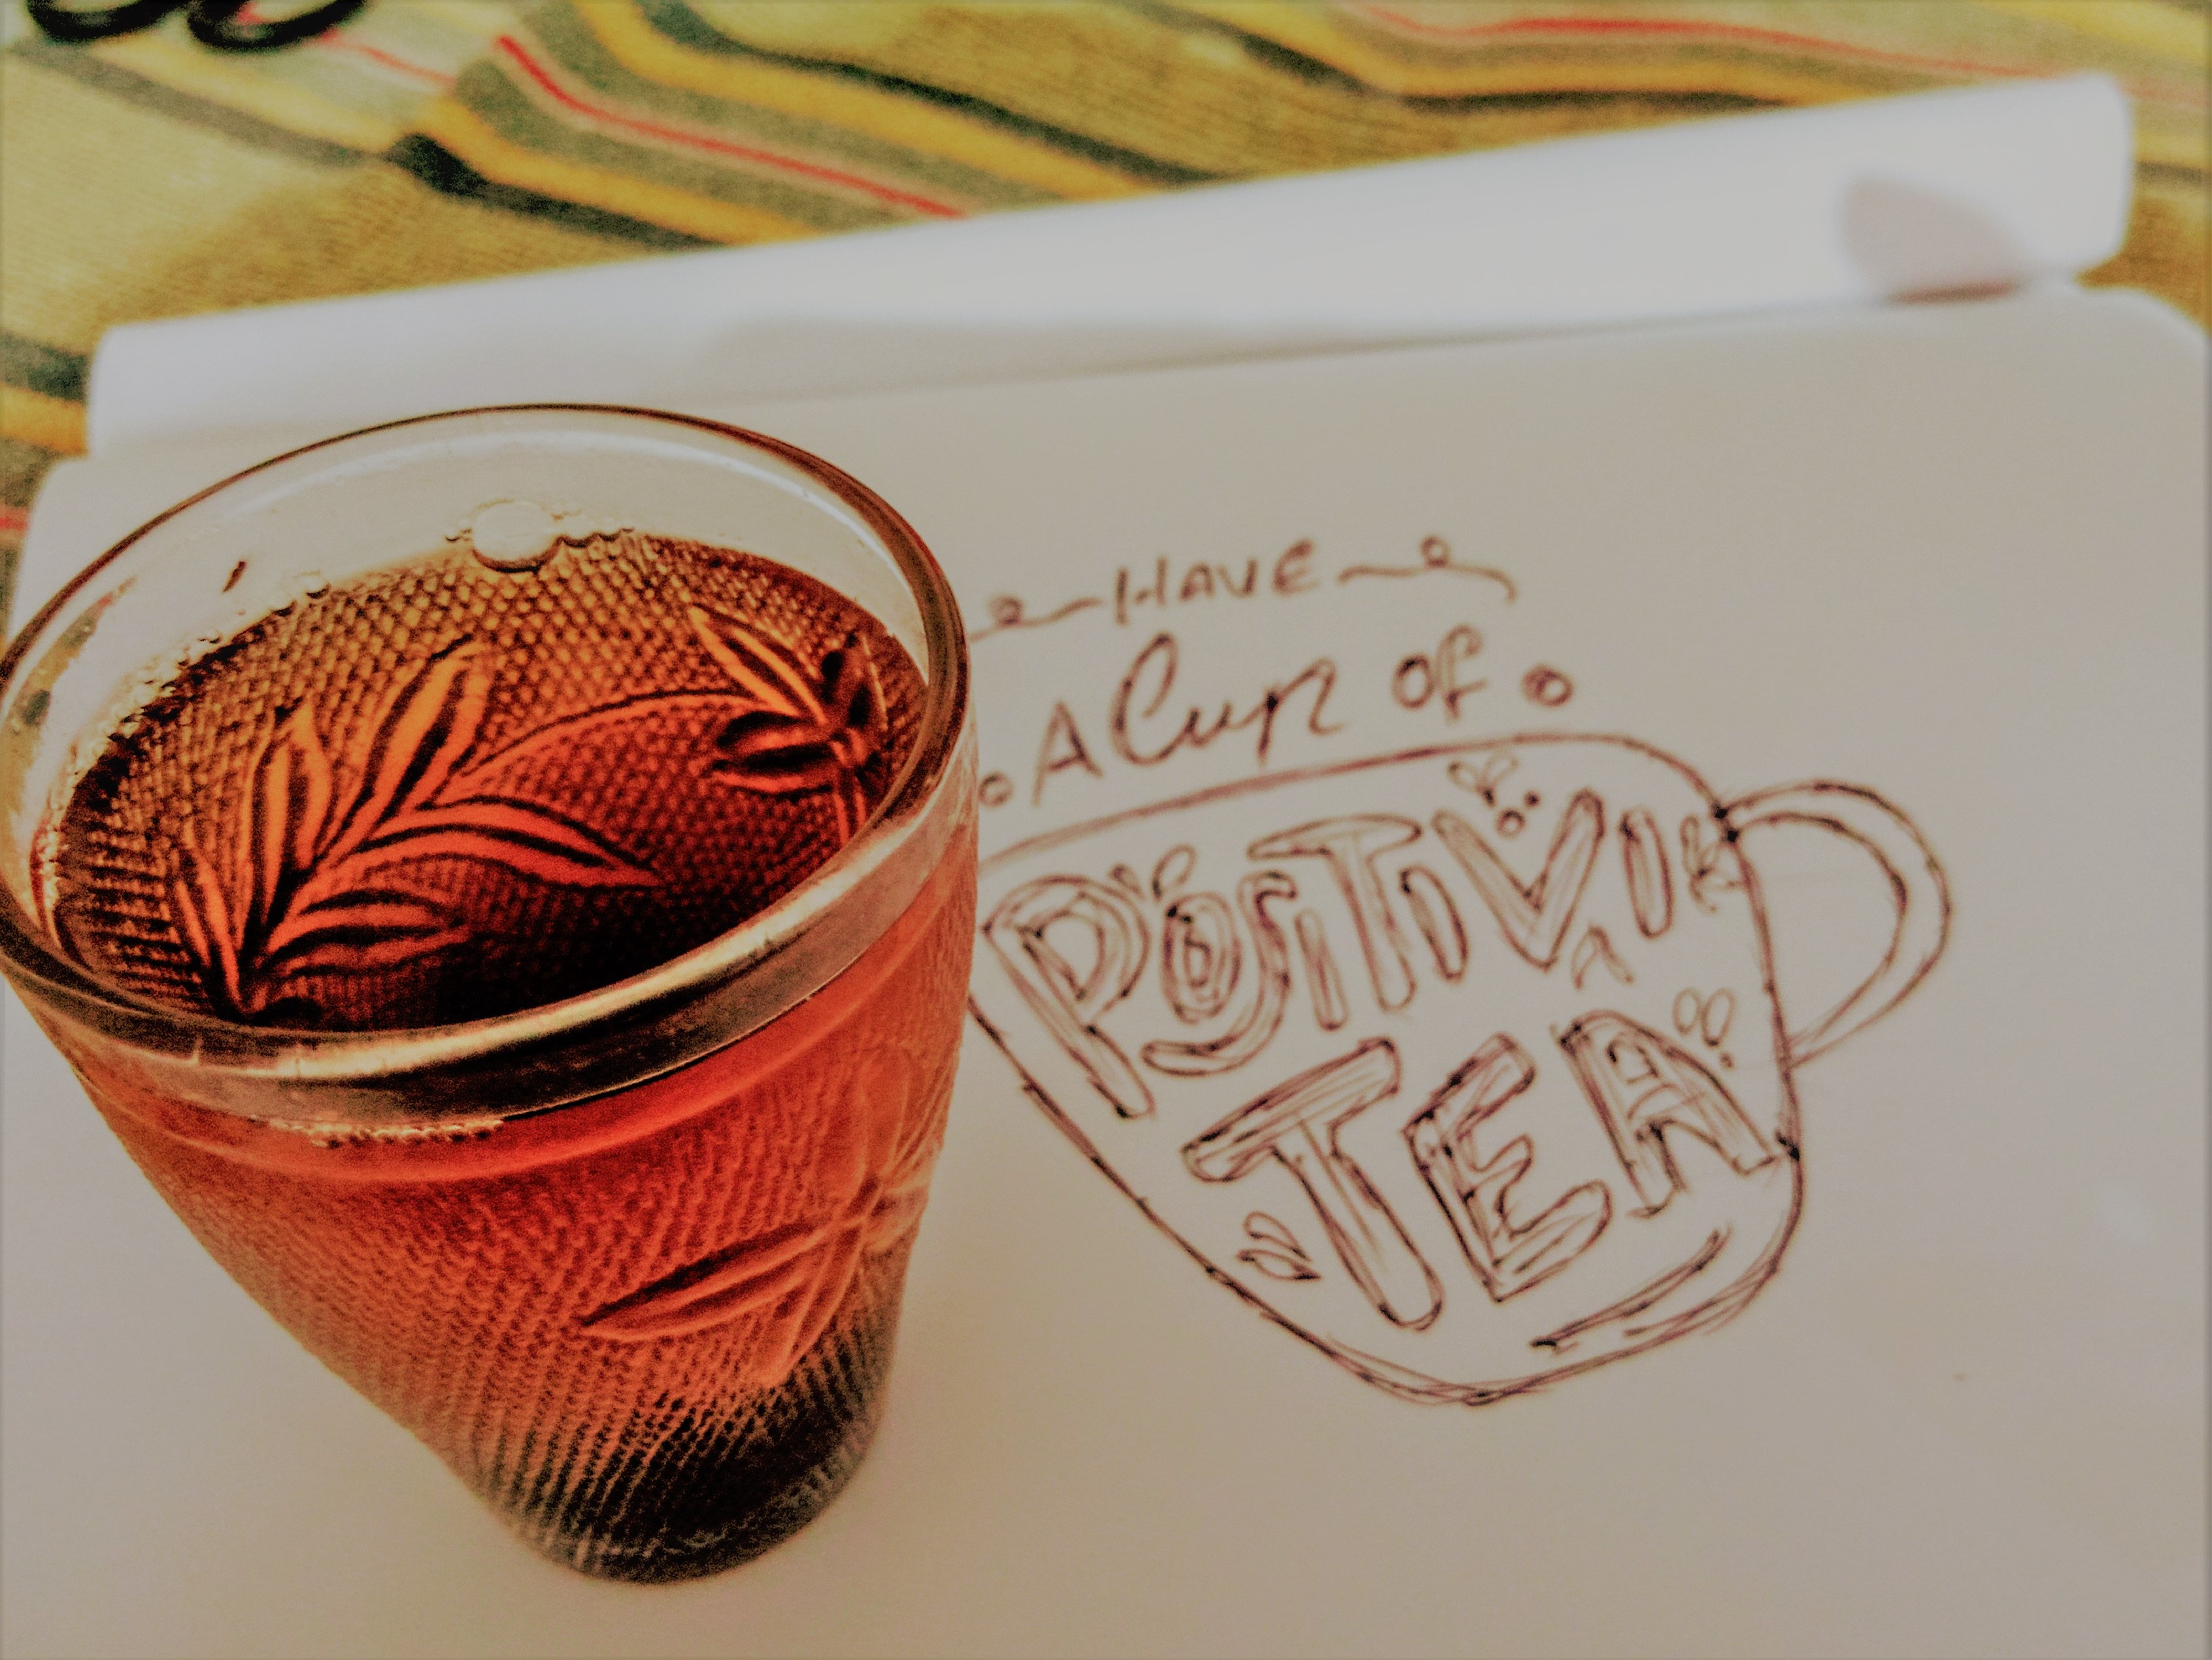 HAVE
A Cup of
POSITIVI
TEA